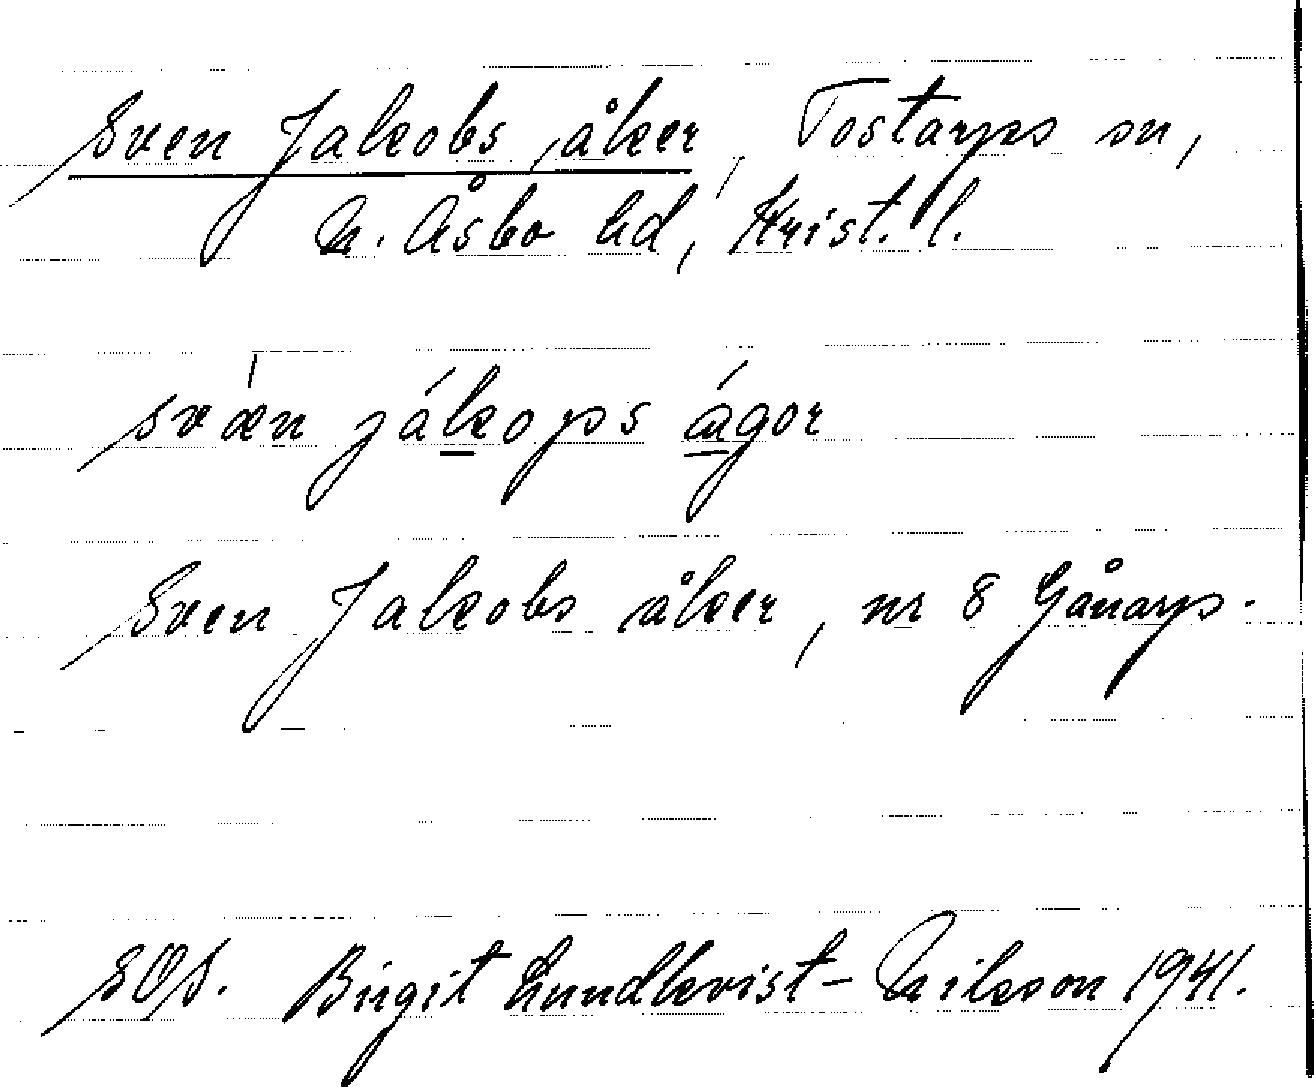 Sven Jakobs åker, Tostarps sn,
N. Åsbo hd, Krist. l.
svæ̀n jákops ágor
Sven Jakobs åker, nr 8 Gånarp.
SOS. Birgit Lundkvist-Nilsson 1941.